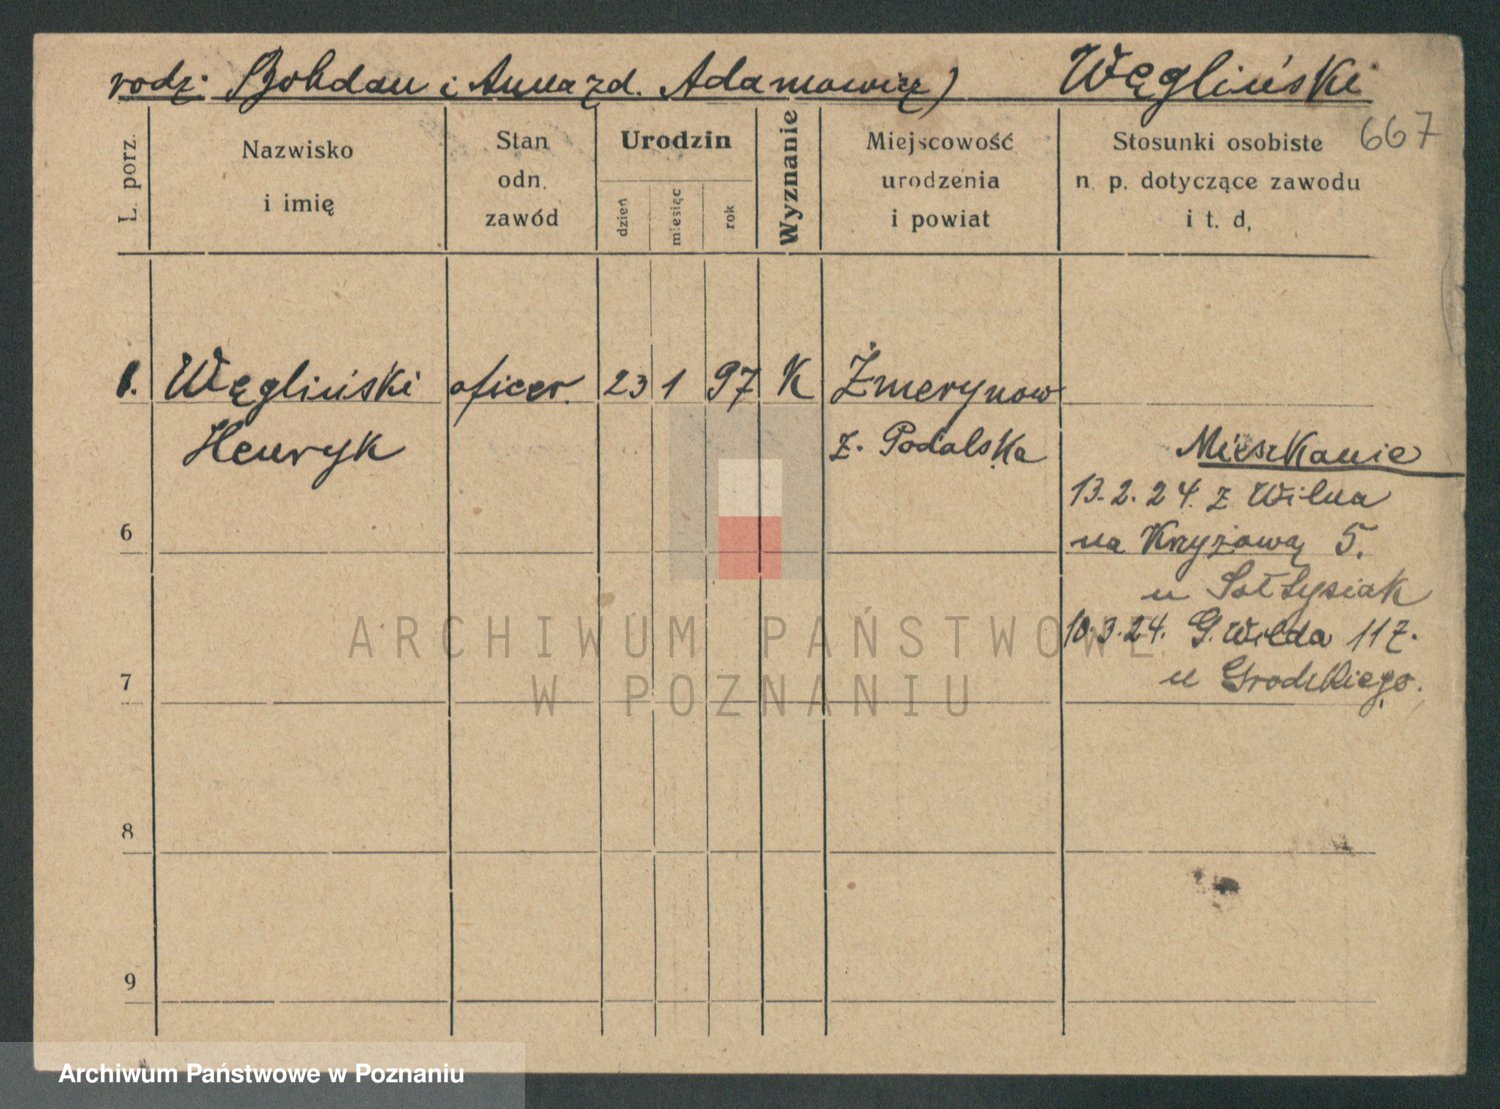 rodz: Bohdan i Anna z d. Adamowicz) Węgliński
667
L. porz.
Nazwisko
i imię
Stan
odn.
zawód
Urodzin
dzień
miesiąc
rok
Wyznanie
Miejscowość
urodzenia
i powiat
Stosunki osobiste
n. p. dotyczące zawodu
i t. d.
1. Węgliński oficer. 23 1 97 K Żmerynow
Henryk z. Podolska
Mieszkanie
13.2.24. z Wilna
6
na Krzyżową 5.
u Sołtysiak
10.3.24. G. Wilda 117.
7
u Grodzkiego.
8
9
ARCHIWUM PAŃSTWOWE
W POZNANIU
Archiwum Państwowe w Poznaniu